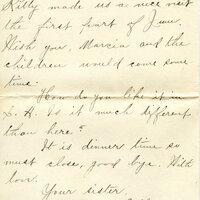 Kitty made us a nice visit
the first part of June.
Wish you, Marcia and the
children would come some
time.
How do you like it in
L. A. Is it much different
than here?
It is dinner time so
must close, good bye. With
love.
Your sister,